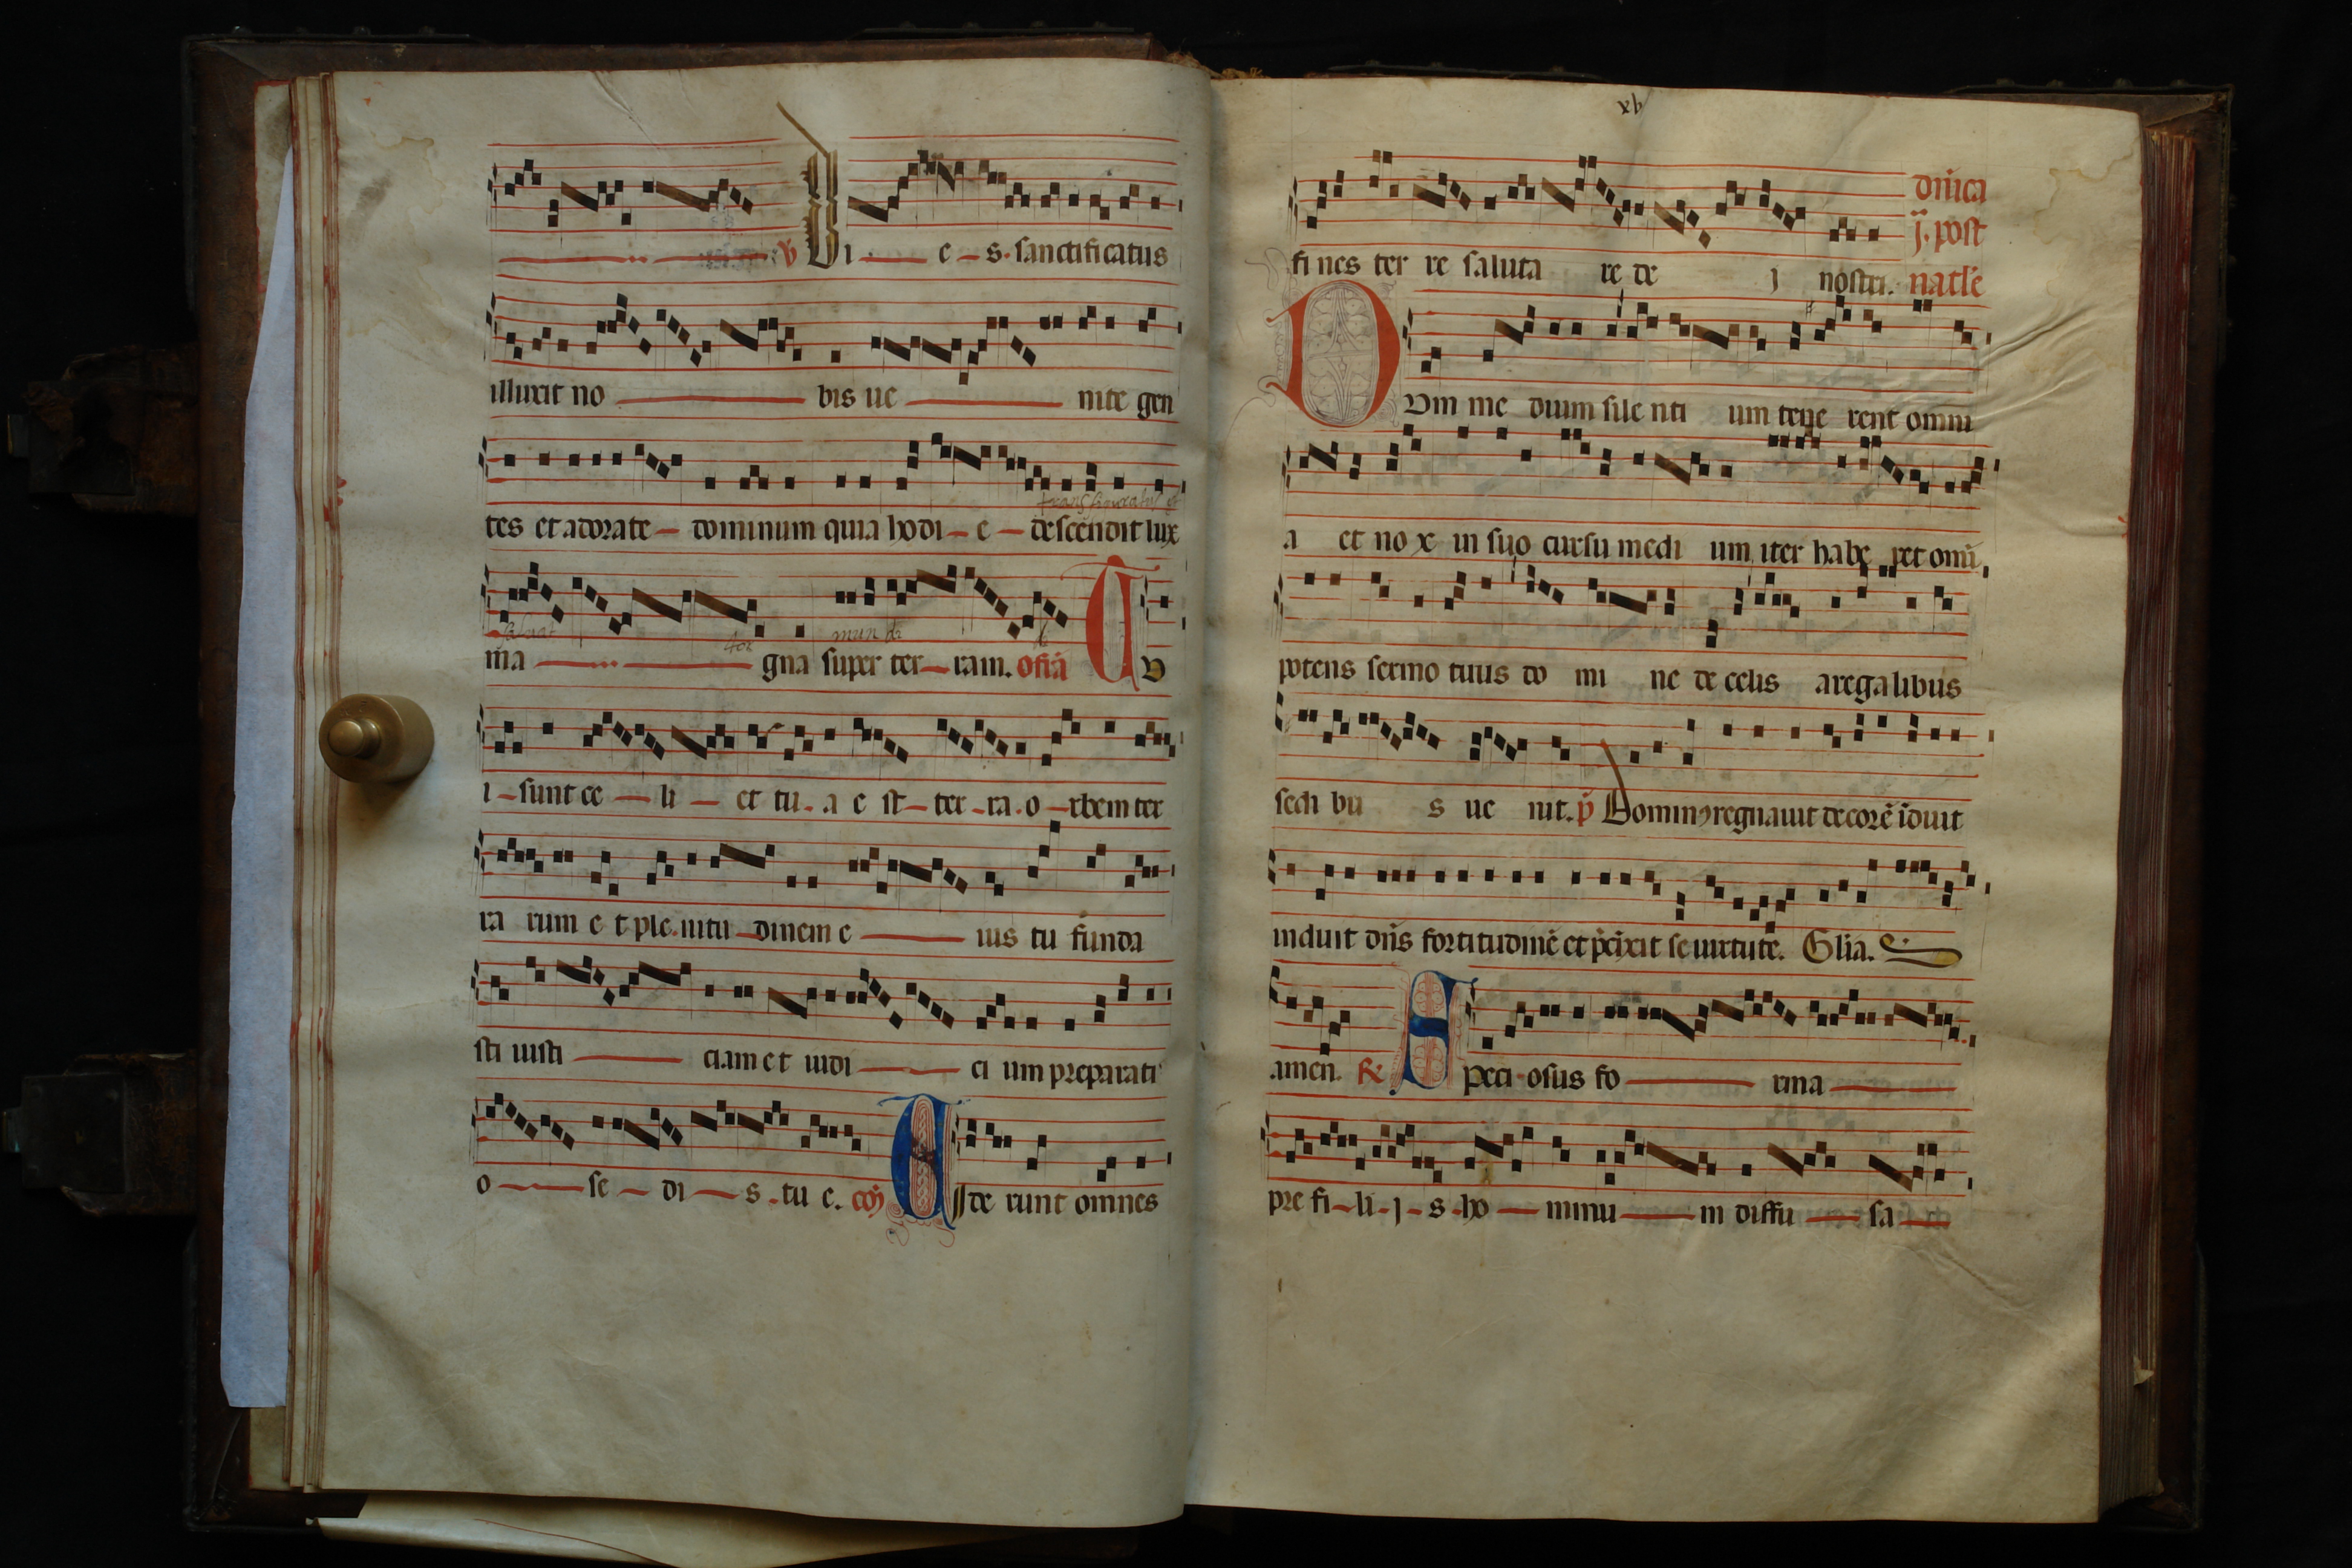 v Di e s. sanctificatus
illuxit no bis ue nite gen
transfiguratus
tes et adorate dominum quia hodi e descendit lux
mundi
ma gna super ter ram. ofiā T v
i sunt ce li et tu. a e st ter ra. o rbem ter
ra rum e t ple. nitu dinem e ius tu funda
sti iusti ciam et iudi ci um preparati
o se di s. tu e. coͫ V Ide runt omnes
xv
fi nes ter re saluta re de j nostri.
dn̄ica
j. post
natl'e
D Vm me dium sile nti um tene rent omni
a et no x in suo cursu medi um iter habe ret omī
potens sermo tuus do mi ne de celis a regalibus
sedi bu s ue nit. p̄ Dominꝯ regnauit decorē īduit
induit dn̄s fortitudinē et p̄cīxit se uirtute. Gl'ia.
amen. R̄ S peci osus fo rma
pre fi li j s ho minu m diffu sa